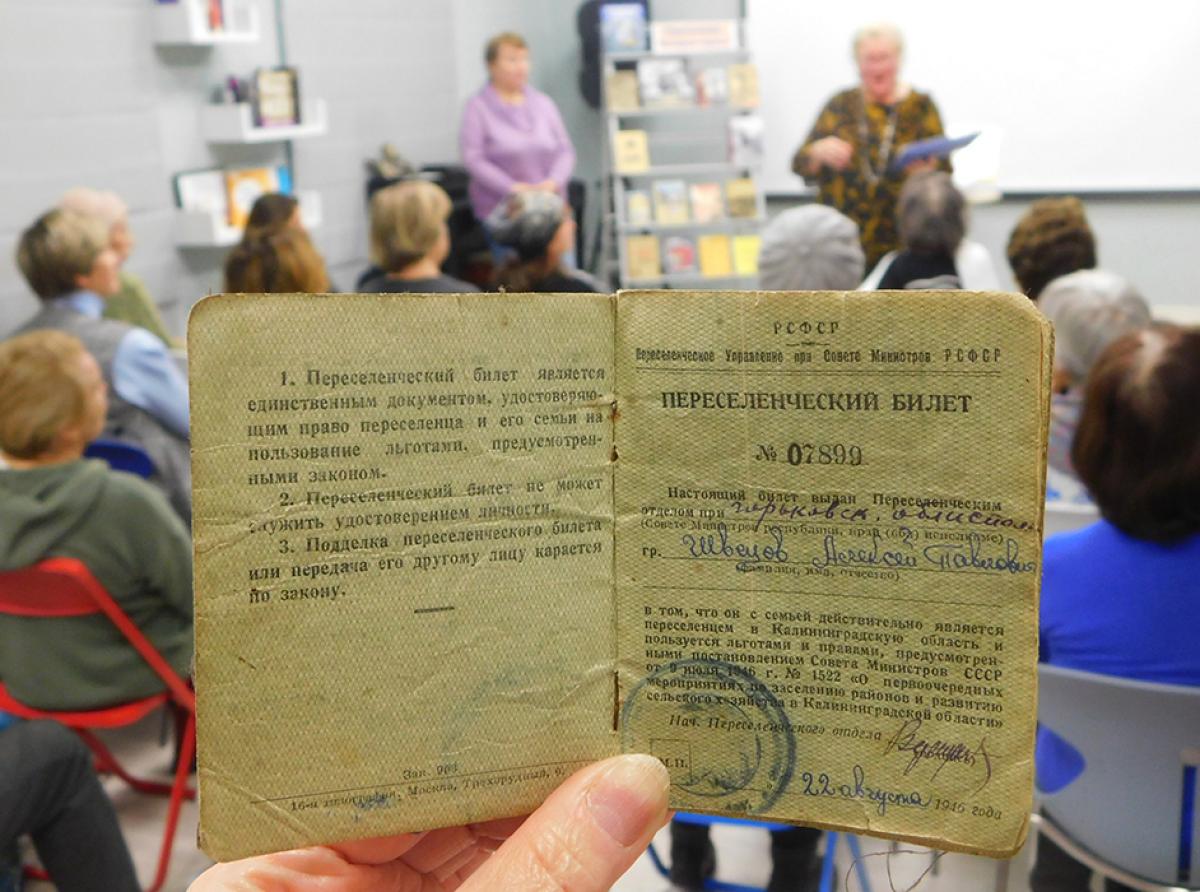 1. Переселенческий билет является
единственным документом, удостоверяю-
щим право переселенца и его семьи на
пользование льготами, предусмотрен-
ными законом.
2. Переселенческий билет не может
служить удостоверением личности.
3. Подделка переселенческого билета
или передача его другому лицу карается
по закону.
16-я типография, Москва, Трехпрудный, 9.
РСФСР
Переселенческое Управление при Совете Министров РСФСР
ПЕРЕСЕЛЕНЧЕСКИЙ БИЛЕТ
№ 07899
Настоящий билет выдан Переселенческим
отделом при горьковск. облисполк
(Совете Министров республики, край (обл) исполкоме)
гр. Швецов Алексей Павлович
(фамилия, имя, отчество)
в том, что он с семьей действительно является
переселенцем в Калининградскую область и
пользуется льготами и правами, предусмотрен-
ными постановлением Совета Министров СССР
от 9 июля 1946 г. № 1522 «О первоочередных
мероприятиях по заселению районов и развитию
сельского хозяйства в Калининградской области»
Нач. Переселенческого отдела
М.П.
22 августа 1946 года